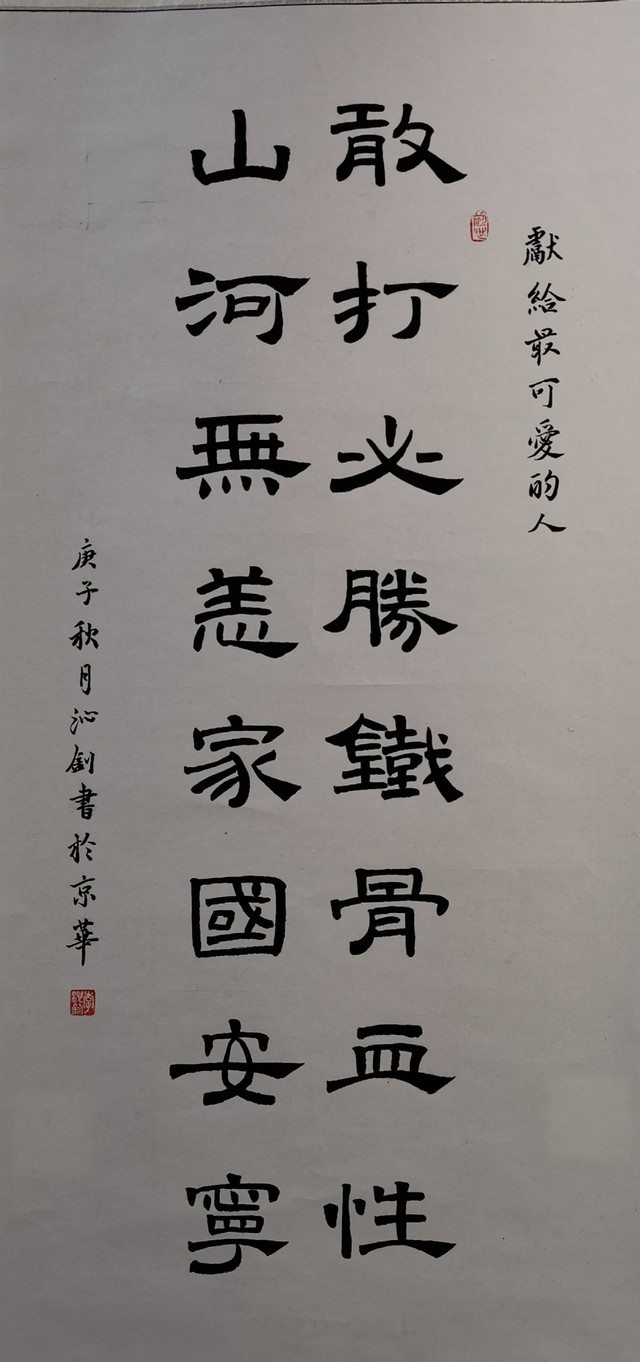 獻給最可愛的人
敢打必勝鐵骨血性
山河無恙家國安寧
庚子秋月沁劍書於京華